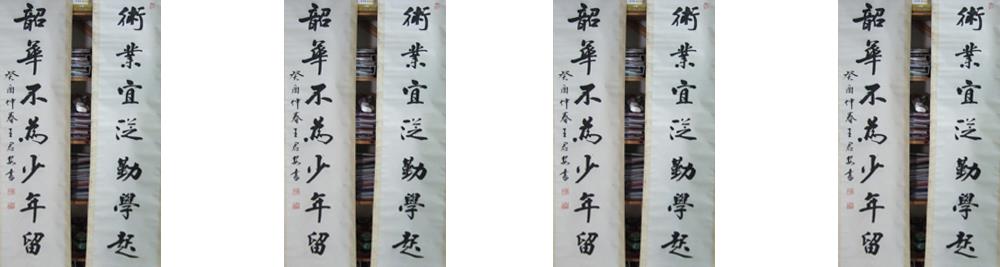 術業宜從勤學起
韶華不為少年留
癸酉仲春王君書
術業宜從勤學起
韶華不為少年留
癸酉仲春王君書
術業宜從勤學起
韶華不為少年留
癸酉仲春王君書
術業宜從勤學起
韶華不為少年留
癸酉仲春王君書